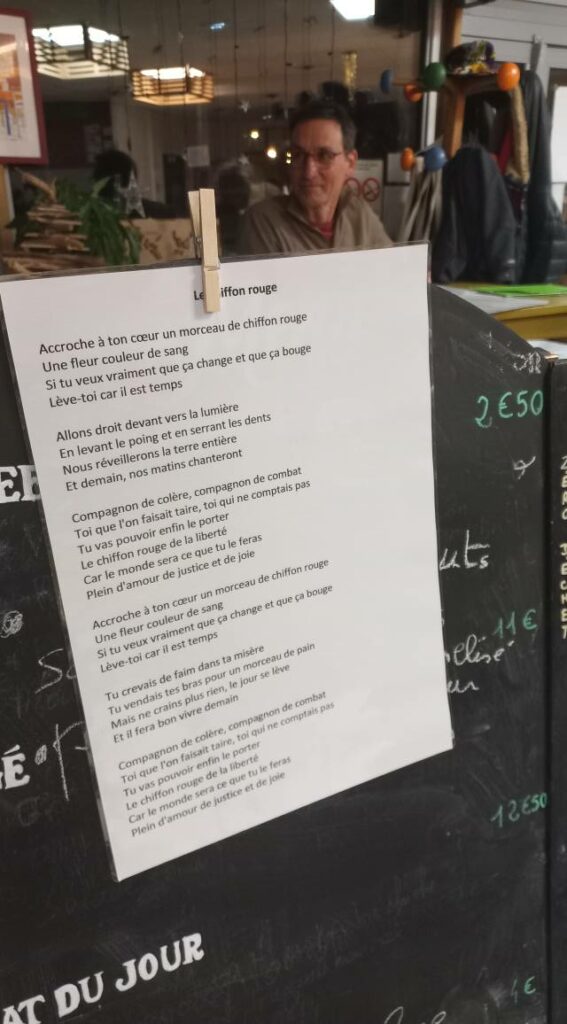 Le chiffon rouge
Accroche à ton cœur un morceau de chiffon rouge
Une fleur couleur de sang
Si tu veux vraiment que ça change et que ça bouge
Lève-toi car il est temps
Allons droit devant vers la lumière
En levant le poing et en serrant les dents
Nous réveillerons la terre entière
Et demain, nos matins chanteront
Compagnon de colère, compagnon de combat
Toi que l'on faisait taire, toi qui ne comptais pas
Tu vas pouvoir enfin le porter
Le chiffon rouge de la liberté
Car le monde sera ce que tu le feras
Plein d'amour de justice et de joie
Accroche à ton cœur un morceau de chiffon rouge
Une fleur couleur de sang
Si tu veux vraiment que ça change et que ça bouge
Lève-toi car il est temps
Tu crevais de faim dans ta misère
Tu vendais tes bras pour un morceau de pain
Mais ne crains plus rien, le jour se lève
Et il fera bon vivre demain
Compagnon de colère, compagnon de combat
Toi que l'on faisait taire, toi qui ne comptais pas
Tu vas pouvoir enfin le porter
Le chiffon rouge de la liberté
Car le monde sera ce que tu le feras
Plein d'amour de justice et de joie
2€50
11€
12€50
AT DU JOUR
4€
ZERO DECHET